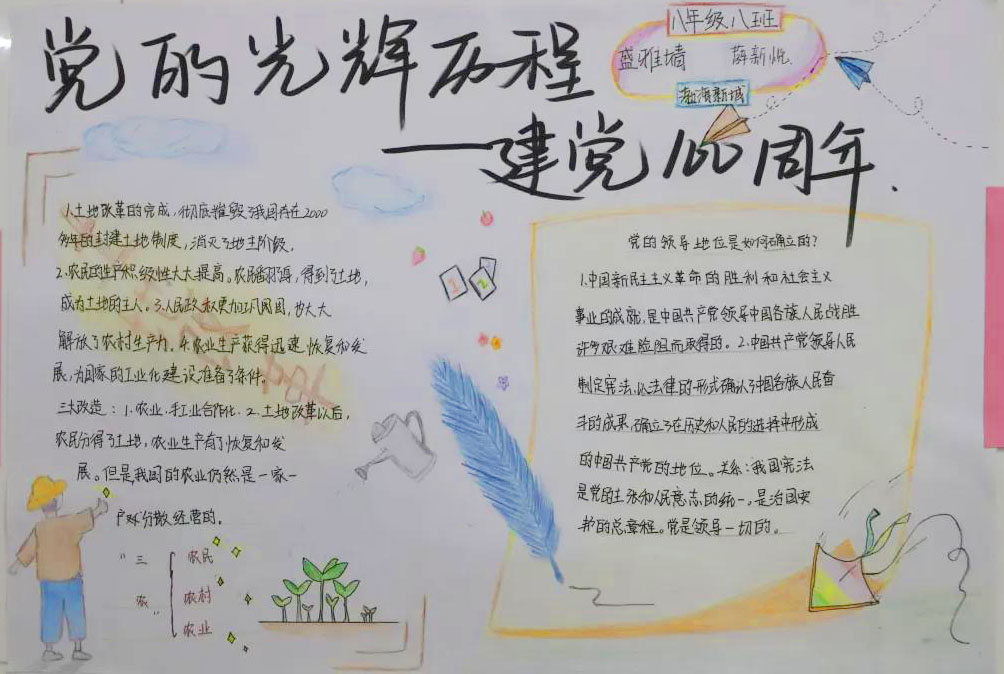 党的光辉历程
——建党100周年.
八年级八班
盛雅墙 蒋新悦
渤海新城
1.土地改革的完成，彻底摧毁了我国存在2000
多年的封建土地制度，消灭了地主阶段，
2.农民的生产积级性大大提高。农民翻了身，得到了土地，
成为土地的主人。3.人民政权更加巩固，也大大
解放了农村生产力。4.农业生产获得迅速恢复和发
展，为国家的工业化建设准备了条件。
三大改造：1.农业、手工业合作化、2.土地改革以后，
农民分得了土地，农业生产有了恢复和发
展。但是，我国的农业仍然是一家一
户对分散经营的。
“三农”
农民
农村
农业
1 2
党的领导地位是如何确立的？
1.中国新民主主义革命的胜利和社会主义
事业的成就，是中国共产党领导中国各族人民战胜
许多艰难险阻而取得的。2.中国共产党领导人民
制定宪法，以法律的形式确认了中国各族人民奋
斗的成果，确立了在历史和人民的选择中形成
的中国共产党的地位。关系：我国宪法
是党的主张和人民意志的统一，是治国安
邦的总章程。党是领导一切的。